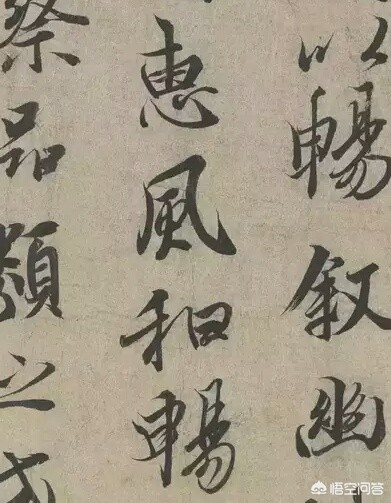 以暢敘幽
惠風和暢
察品類之盛
悟空问答